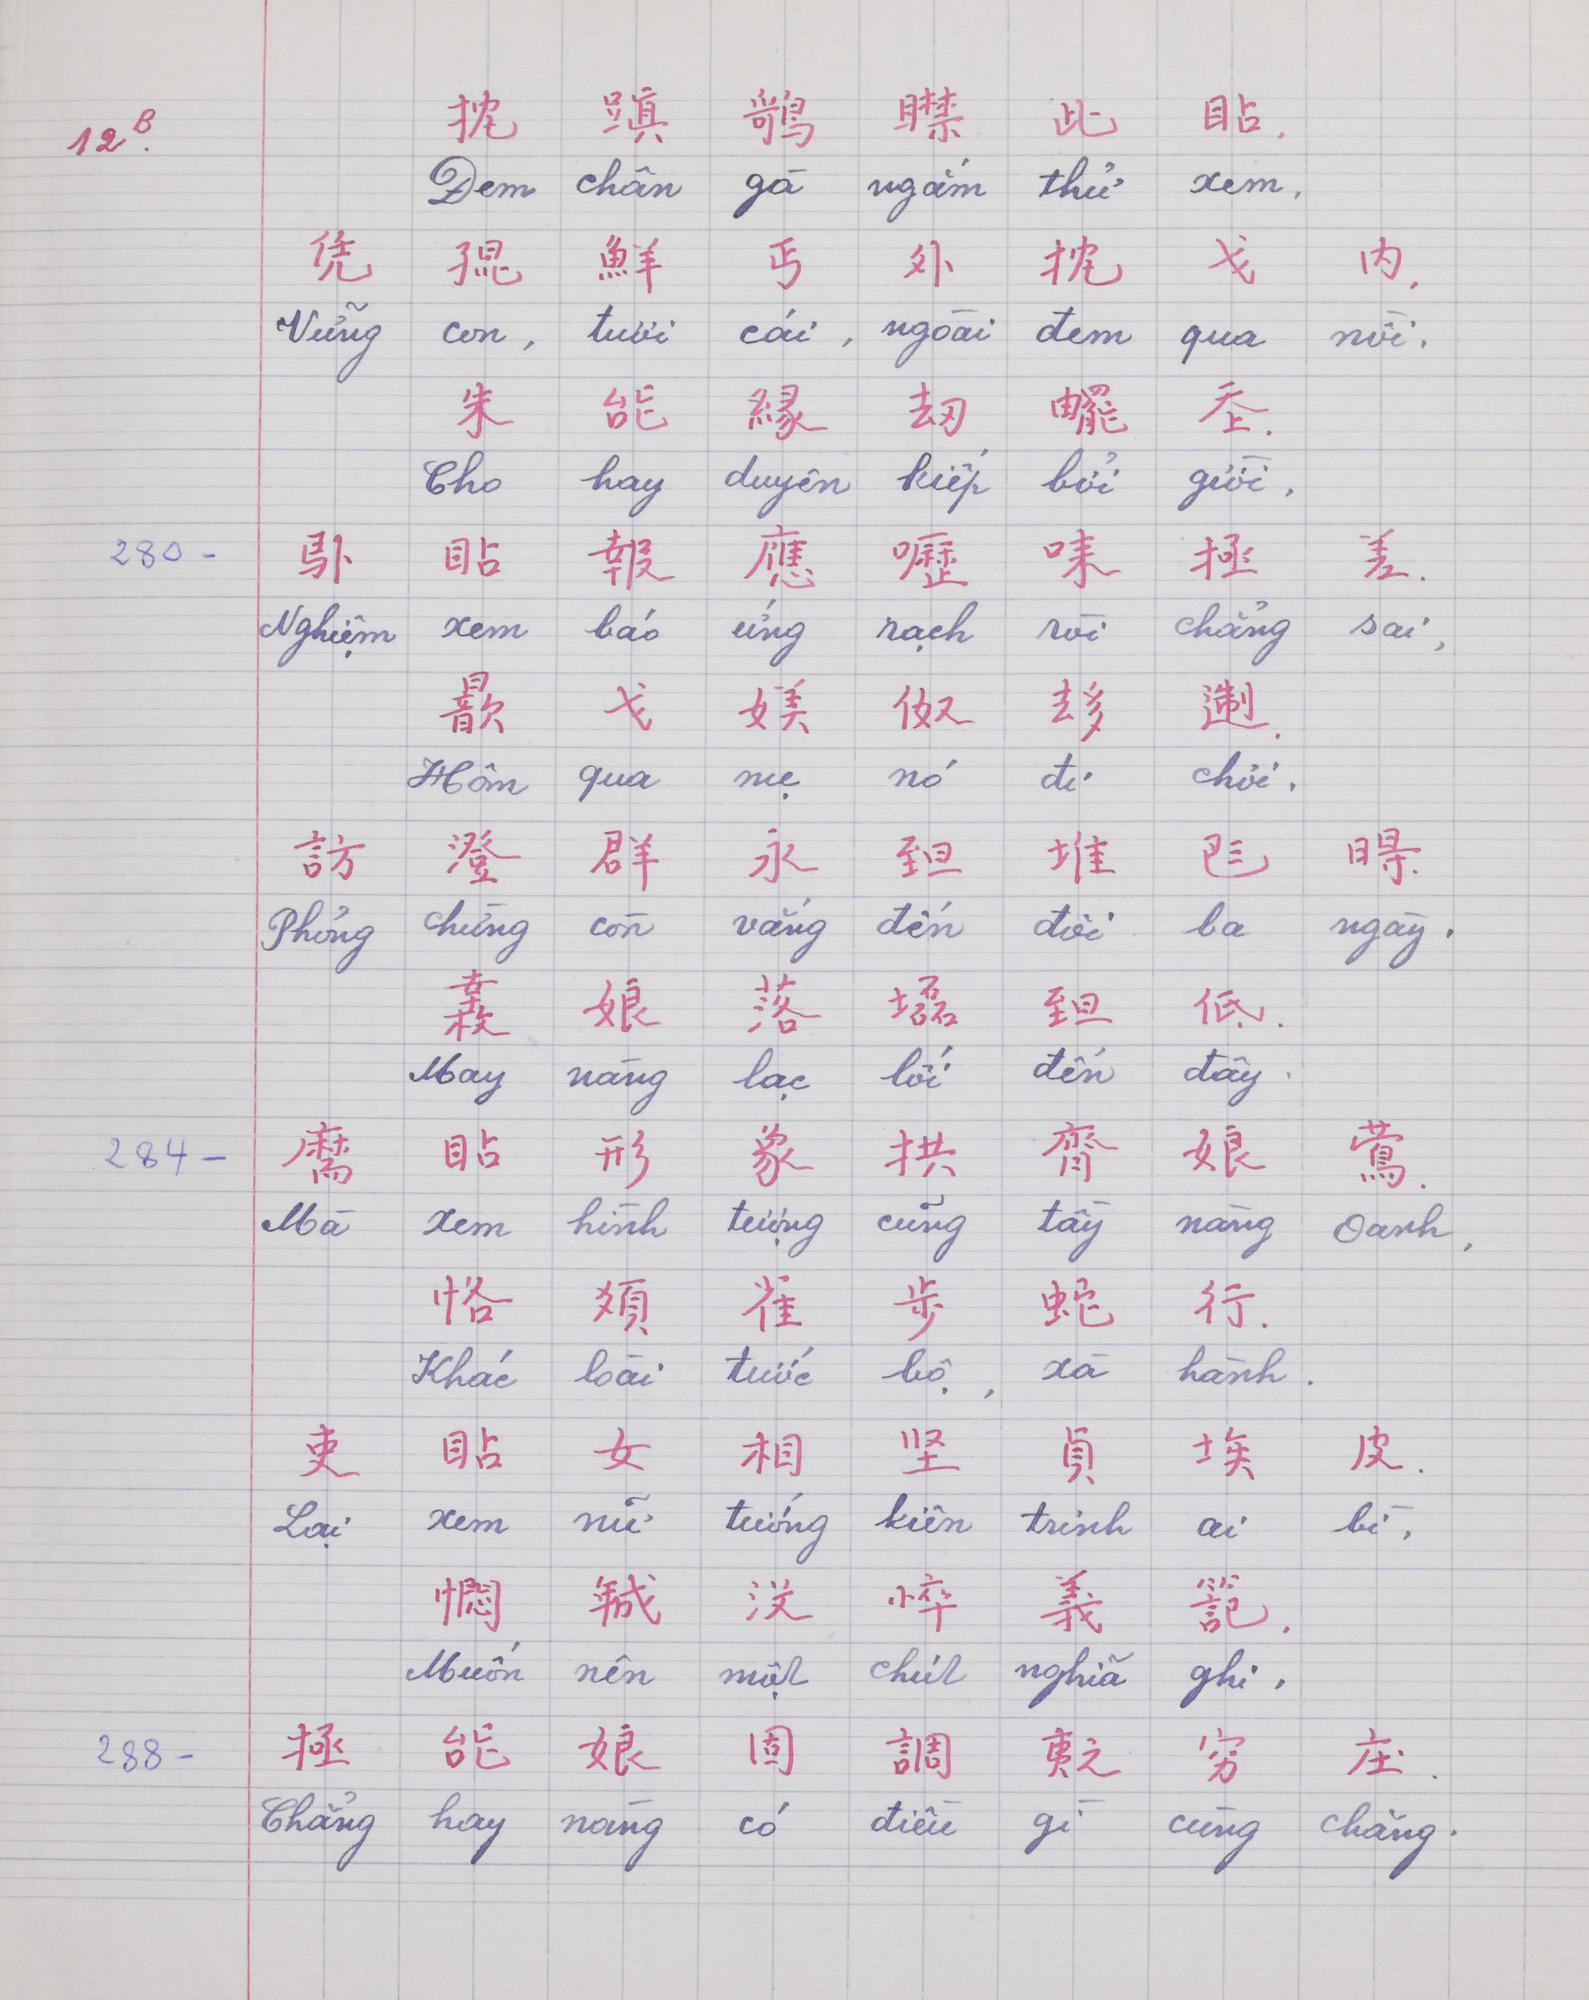 12B.
抌 蹎 鵸 矃 此 貼.
Đem chân gà ngắm thử xem,
凭 𡥵 鮮 丐 外 抌 戈 内,
Vững con, tươi cái, ngoài đem qua nồi.
朱 能 緣 刧 𤳸 𡗶.
Cho hay duyên kiếp bởi giời,
280- 貼 報 應 嚦 唻 拯 差.
Nghiệm xem báo ứng rạch ròi chẳng sai,
歆 戈 媄 伮 𠫾 𨔾.
Hôm qua mẹ nó đi chơi.
訪 澄 群 永 𦤾 堆 𠀧 𣈗.
Phỏng chừng còn vắng đến đôi ba ngày.
娘 落 𡓃 𦤾 低.
May nàng lạc lối đến đây.
284- 貼 形 象 拱 齊 娘 鶯.
Mà xem hình tượng cũng tầy nàng Oanh,
恪 類 雀 步 蛇 行.
Khác loài tước bộ, xà hành.
吏 貼 女 相 坚 貞 埃 皮.
Lại xem nữ tướng kiên trinh ai bì,
憫 𢧚 没 悴 義 𥱬.
Muốn nên một chút nghĩa ghi,
288- 拯 能 娘 固 調 之 穷 庄.
Chẳng hay nàng có điều gì cùng chăng.